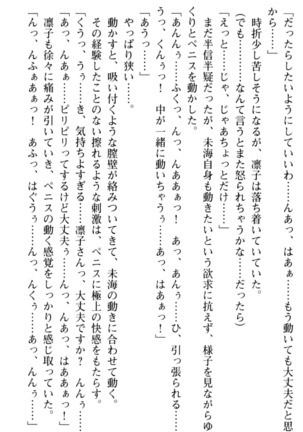 「だったらしたいようにしていいわ……んっ、はぁ……もう動いても大丈夫だと思
うから……」
　時折少し苦しそうになるが、凛子は落ち着いていていた。
（でも……なんて言うとまた怒られちゃうかな……だったら）
「えっと……じゃ、じゃあちょっとだけ……」
　まだ半信半疑だったが、未海自身も動きたいという欲求に抗えず、様子を見ながらゆ
っくりとペニスを動かした。
「あんんぅ……ふくっ、んっ、んあぁぁっ！　あっ、あんぅ……ひ、引っ張られる……
うっ、くんぅっ！　中が一緒に動いちゃうぅ……あっ、はぁぁっ！」
「あうっ……」
　やっぱり狭い……。
　動かすと、吸い付くような膣壁が絡みついてきて、未海の動きに合わせて動く。
　その経験したことのない擦れるような刺激は、ペニスに極上の快感をもたらす。
「くうっ、うぅ……き、気持ちよすぎる……凛子さんっ、大丈夫ですか？　んんっ」
「あっ、んあぁ……ピリピリってするけど大丈夫ぅ……んっ、んあっ、はああぁっ！」
　凛子も徐々に痛みが引いていき、ペニスの動く感覚をしっかりと感じ取っていた。
「んっ、んふぁぁぁっ！　あふっ、はぐうぅ……んっ、んくぅ……あっ、んんぅ……！